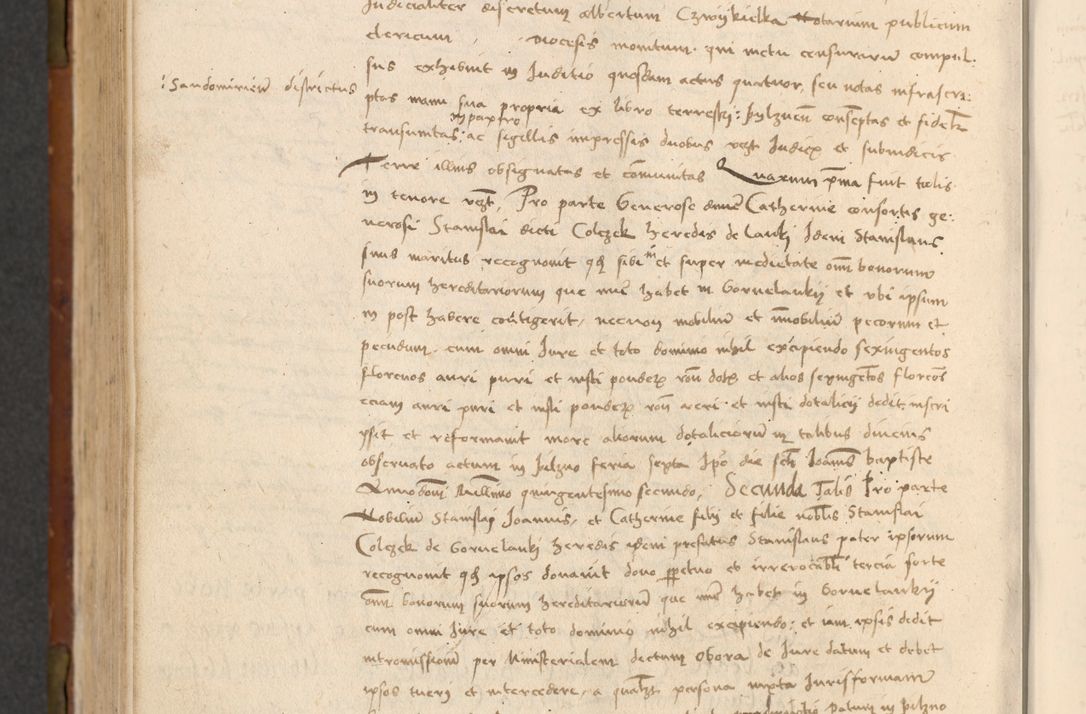 Judicialiter discretum Albertum Czwykielka Notarium publicum
clericum Diocesis monitum qui metu censurarum compul:
sus exhibuit in Juditio quosdam actus quatuor, seu notas infrascri:
: Sandomirien districtus
ptas manu sua propria ex libro terrestri : pylznen conscptas et fidelr
in parte
transumtas, ac sigellis impressis duobus vczt Judicis et subiudicis
Terre illius obsignatas et comunitas Quarum pma fuit talis
in tenore vczt, Pro parte Generose dnne Catherine consortis ge:
nerosi Stanislai dicti Colczek heredis de lanki Idem Stanislaus
suus maritus recognovit qd sibi in et super medietate omi bonorum
suorum hereditariorum que nunc habet in Gornelankij et vbi ipsum
in post habere contigerit, necnon mobilium et immobilium pecorum et
pecudum, cum omni Jure et toto dominio nihil excipiendo sexingentos
florenos auri puri et iusti ponderis ron dotis et alios sexingetos florenos
eciam auri puri et iusti ponderis ron veri et iusti dotalicij dedit inscri
psit et reformavit more aliorum dotaliciorum in talibus diucius
observato actum in pilzno feria sexta Ipo die scti Joannis baptiste
Anno domi Millimo quingentesimo secundo, Secunda Talis Pro parte
Nobilium Stanislai Joannis, et Catherine filij et filie noblis Stanislai
Colczek de Gornelanki heredis idem prefatus Stanislaus pater ipsorum
recognovit qd ipsos donavit dono ppetuo et irrevocabli tercia sorte
omi bonorum suorum hereditariorum que nunc habet in Gornelankij
cum omni Jure et toto dominio nihil excipiendo: et iam ipsis dedit
intromissionem per Ministerialem dectum Obora de Jure datum et debet
ipsos tueri et intercedere, a qualzt persona iuxta Jurisformam
datum in pilzno